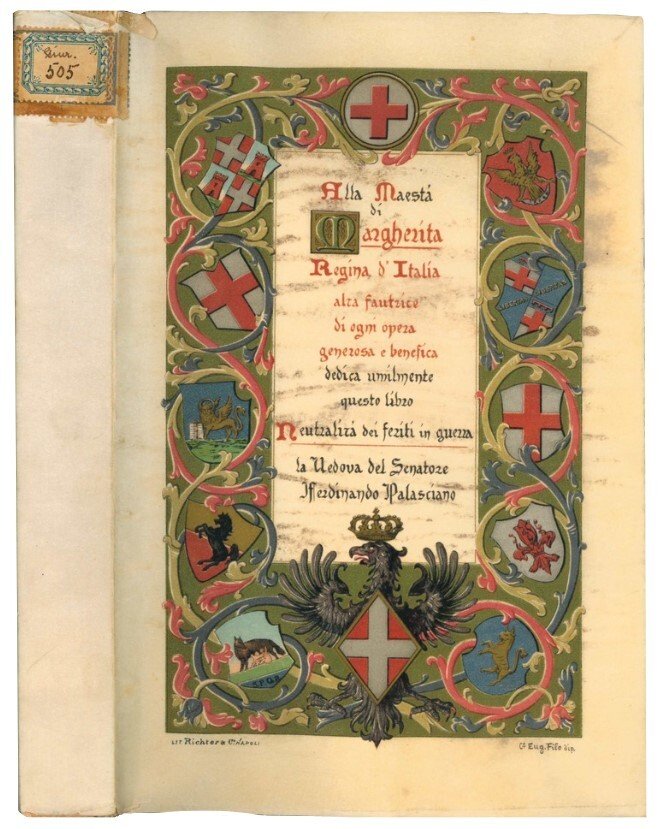 Genr.
505
Alla Maestá
di
Margherita
Regina d'Italia
alta fautrice
di ogni opera
generosa e benefica
dedica umilmente
questo libro
Neutralitá dei feriti in guerra
la Vedova del Senatore
Ferdinando Palasciano
S.P.Q.R.
LIT. Richter & Co. NAPOLI
Eug. Filo dip.